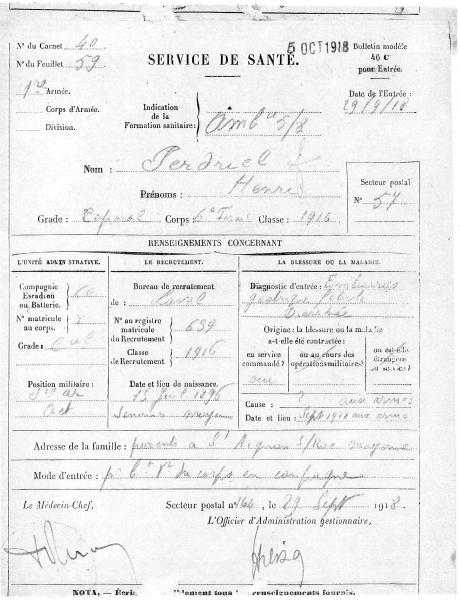 N° du Carnet 40
N° du Feuillet 59
5 OCT 1918
Bulletin modèle
46 C
pour Entrée.
SERVICE DE SANTÉ.
1re Armée.
Corps d'Armée.
Division.
Indication
de la
Formation sanitaire:
Ambce 5/8
Date de l'Entrée:
29/9/18
Nom : Perdriel
Prénoms : Henri
Secteur postal
N° 57
Grade : Caporal Corps : 6e Classe : 1916
RENSEIGNEMENTS CONCERNANT
L'UNITÉ ADMINISTRATIVE.
Compagnie
Escadron
ou Batterie.
N° matricule
au corps.
Grade: Cal
Position militaire:
Act
LE RECRUTEMENT.
Bureau de recrutement
de: Laval
N° au registre
matricule
du Recrutement
639
Classe
de
1916
Date et lieu de naissance.
1896
LA BLESSURE OU LA MALADIE.
Diagnostic d'entrée: Embarras
gastrique fébrile
Diarrhée
Origine: la blessure ou la maladie
a-t-elle été contractée:
en service
commandé?
oui
ou au cours des
opérations militaires?
ou est-elle
étrangère
Cause : ? aux armes
Date et lieu : Sept 1918 aux armées
Adresse de la famille: parents à St Aignan s/Roe Mayenne
Mode d'entrée: pr du corps en campagne
Le Médecin-Chef,
Secteur postal n° 164, le 29 Sept 1918.
L'Officier d'Administration gestionnaire,
NOTA. — tous renseignements fournis.